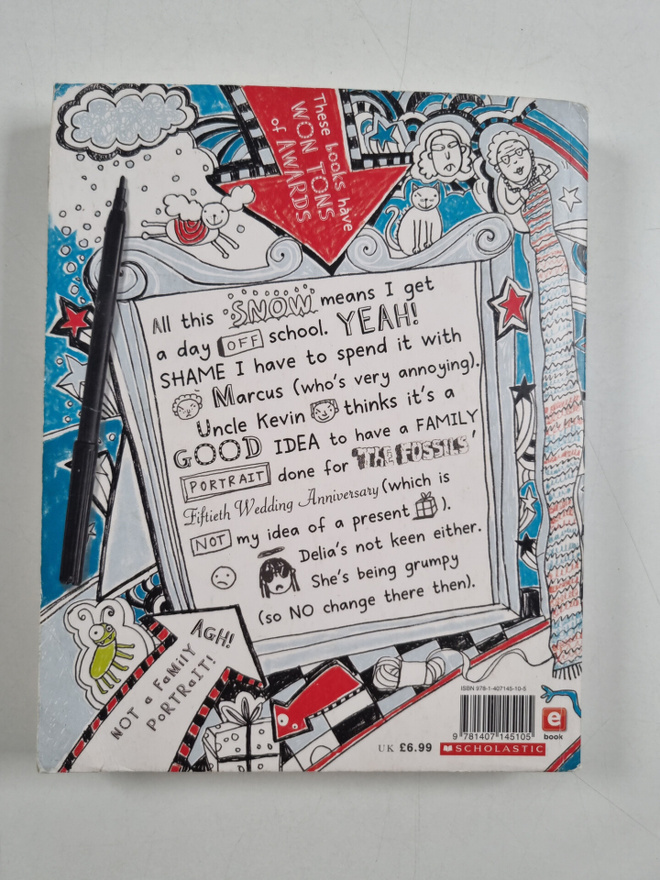 These books have
WON TONS
of AWARDS
All this SNOW means I get
a day OFF school. YEAH!
SHAME I have to spend it with
Marcus (who's very annoying).
Uncle Kevin thinks it's a
GOOD IDEA to have a FAMILY
PORTRAIT done for 'THE FOSSILS'
Fiftieth Wedding Anniversary (which is
NOT my idea of a present ).
Delia's not keen either.
She's being grumpy
(so NO change there then).
AGH!
NOT a FaMiLY
PoRTRaiT!
ISBN 978-1-407145-10-5
9 781407 145105
e
book
UK £6.99 SCHOLASTIC